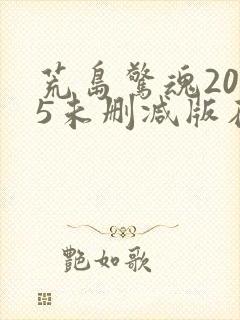 荒岛驚魂20
5未删减版
艷如歌